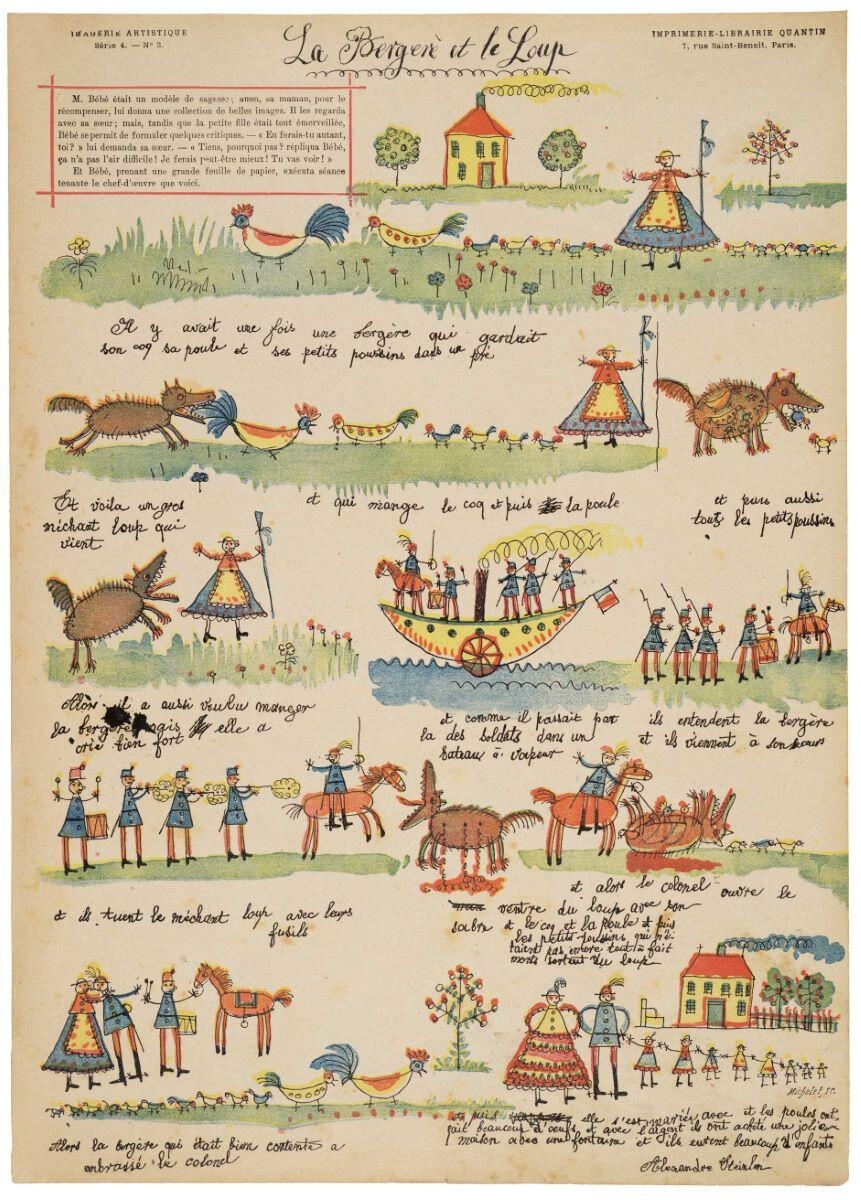 IMAGERIE ARTISTIQUE
Série 4. — Nº 3.
La Bergere et le Loup
IMPRIMERIE-LIBRAIRIE QUANTIN
7, rue Saint-Benoît, Paris.
M. Bébé était un modèle de sagesse; aussi, sa maman, pour le
récompenser, lui donna une collection de belles images. Il les regarda
avec sa sœur; mais, tandis que la petite fille était tout émerveillée,
Bébé se permit de formuler quelques critiques. — « En ferais-tu autant,
toi? » lui demanda sa sœur. — « Tiens, pourquoi pas? répliqua Bébé,
ça n'a pas l'air difficile! Je ferais peut-être mieux! Tu vas voir! »
Et Bébé, prenant une grande feuille de papier, exécuta séance
tenante le chef-d'œuvre que voici.
Il y avait une fois une bergère qui gardait
son coq sa poule et ses petits poussins dans un pré
Et voila un gros
méchant loup qui
vient
et qui mange le coq et puis la poule
et puis aussi
tous les petits poussins
Alors il a aussi voulu manger
la bergère mais elle a
crié bien fort
et comme il passait par
la des soldats dans un
bateau à vapeur
ils entendent la bergère
et ils viennent à son secours
et ils tuent le méchant loup avec leurs
fusils
et alors le colonel ouvre le
ventre du loup avec son
sabre et le coq et la poule et puis
les petits poussins qui n'é-
taient pas encore tout à fait
morts sortent du loup
Alors la bergère qui était bien contente a
embrassé le colonel
et puis elle s'est mariée avec et les poules ont
fait beaucoup d'œufs et avec l'argent ils ont acheté une jolie
maison avec une fontaine et ils eurent beaucoup d'enfants
Michelet sc.
Alexandre Steinlen